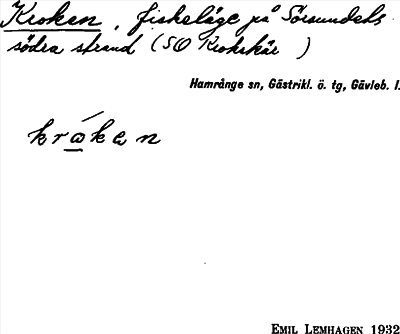 Kroken, fiskeläge på Sörsundets
södra strand (SO Krokskär )
Hamrånge sn, Gästrikl. ö. tg, Gävleb. l.
kro̲ken
EMIL LEMHAGEN 1932